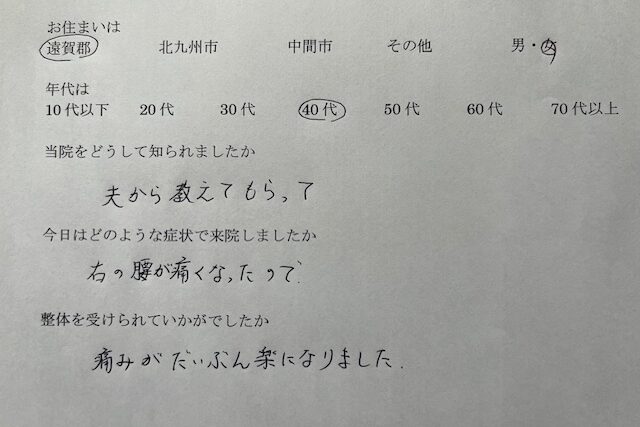 お住まいは
遠賀郡 北九州市 中間市 その他 男・女
年代は
10代以下 20代 30代 40代 50代 60代 70代以上
当院をどうして知られましたか
夫から教えてもらって
今日はどのような症状で来院しましたか
右の腰が痛くなったので.
整体を受けられていかがでしたか
痛みがだいぶん楽になりました.